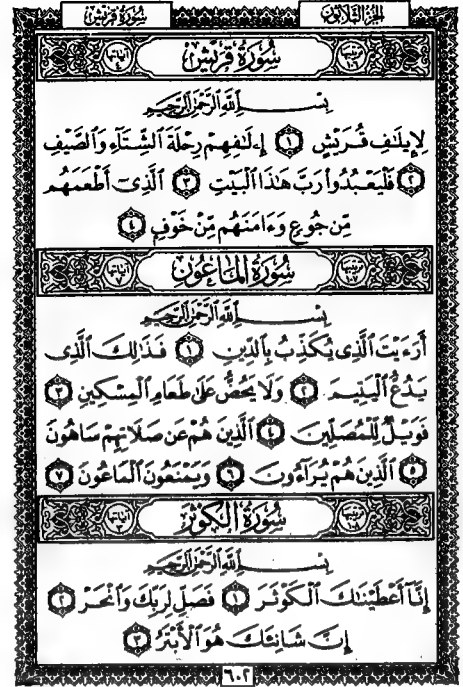 الجزء الثلاثون سورة قريش
ترتيبها ١٠٦ سُورَةُ قُرَيْشٍ آياتها ٤
بِسْمِ اللَّهِ الرَّحْمَٰنِ الرَّحِيمِ
لِإِيلَٰفِ قُرَيْشٍ ١ إِۦلَٰفِهِمْ رِحْلَةَ ٱلشِّتَآءِ وَٱلصَّيْفِ
٢ فَلْيَعْبُدُوا۟ رَبَّ هَٰذَا ٱلْبَيْتِ ٣ ٱلَّذِىٓ أَطْعَمَهُم
مِّن جُوعٍ وَءَامَنَهُم مِّنْ خَوْفٍ ٤
ترتيبها ١٠٧ سُورَةُ المَاعُونِ آياتها ٧
بِسْمِ اللَّهِ الرَّحْمَٰنِ الرَّحِيمِ
أَرَءَيْتَ ٱلَّذِى يُكَذِّبُ بِٱلدِّينِ ١ فَذَٰلِكَ ٱلَّذِى
يَدُعُّ ٱلْيَتِيمَ ٢ وَلَا يَحُضُّ عَلَىٰ طَعَامِ ٱلْمِسْكِينِ ٣
فَوَيْلٌ لِّلْمُصَلِّينَ ٤ ٱلَّذِينَ هُمْ عَن صَلَاتِهِمْ سَاهُونَ
٥ ٱلَّذِينَ هُمْ يُرَآءُونَ ٦ وَيَمْنَعُونَ ٱلْمَاعُونَ ٧
ترتيبها ١٠٨ سُورَةُ الكَوْثَرِ آياتها ٣
بِسْمِ اللَّهِ الرَّحْمَٰنِ الرَّحِيمِ
إِنَّآ أَعْطَيْنَٰكَ ٱلْكَوْثَرَ ١ فَصَلِّ لِرَبِّكَ وَٱنْحَرْ ٢
إِنَّ شَانِئَكَ هُوَ ٱلْأَبْتَرُ ٣
٦٠٢